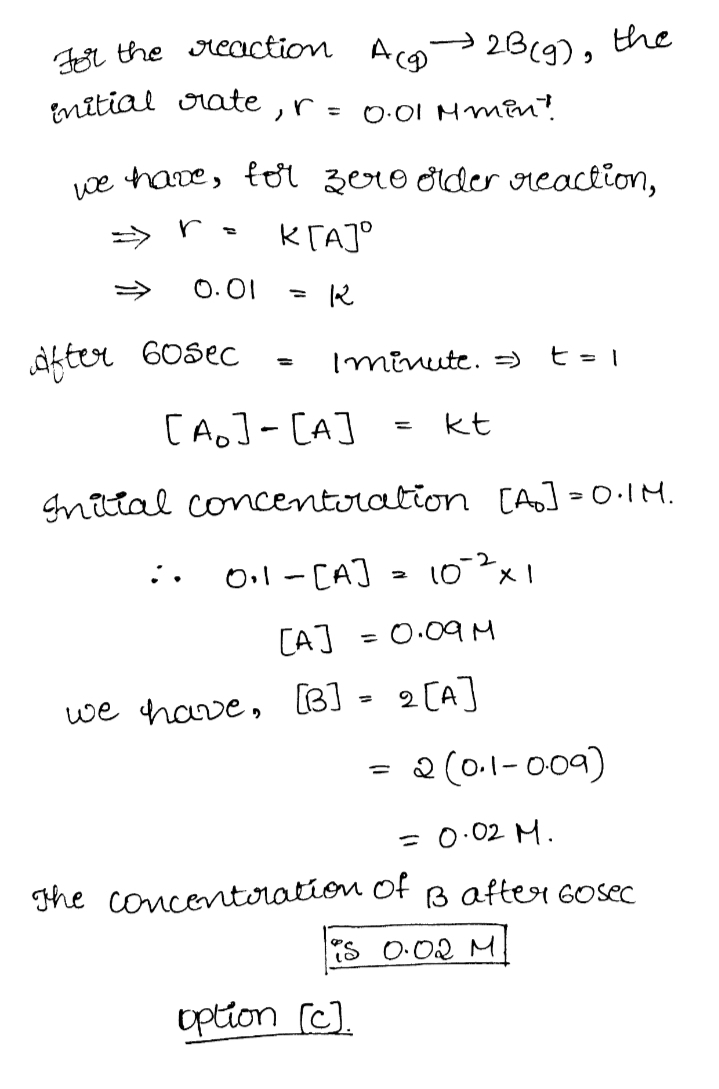 For the reaction A(g) → 2B(g), the
initial rate, r = 0.01 M min⁻¹.
we have, for zero order reaction,
⇒ r = K[A]⁰
⇒ 0.01 = K
After 60sec = 1minute. ⇒ t = 1
[A₀] - [A] = kt
Initial concentration [A₀] = 0.1M.
∴ 0.1 - [A] = 10⁻² x 1
[A] = 0.09 M
we have, [B] = 2[A]
= 2(0.1-0.09)
= 0.02 M.
The concentration of B after 60sec
is 0.02 M
option [C].